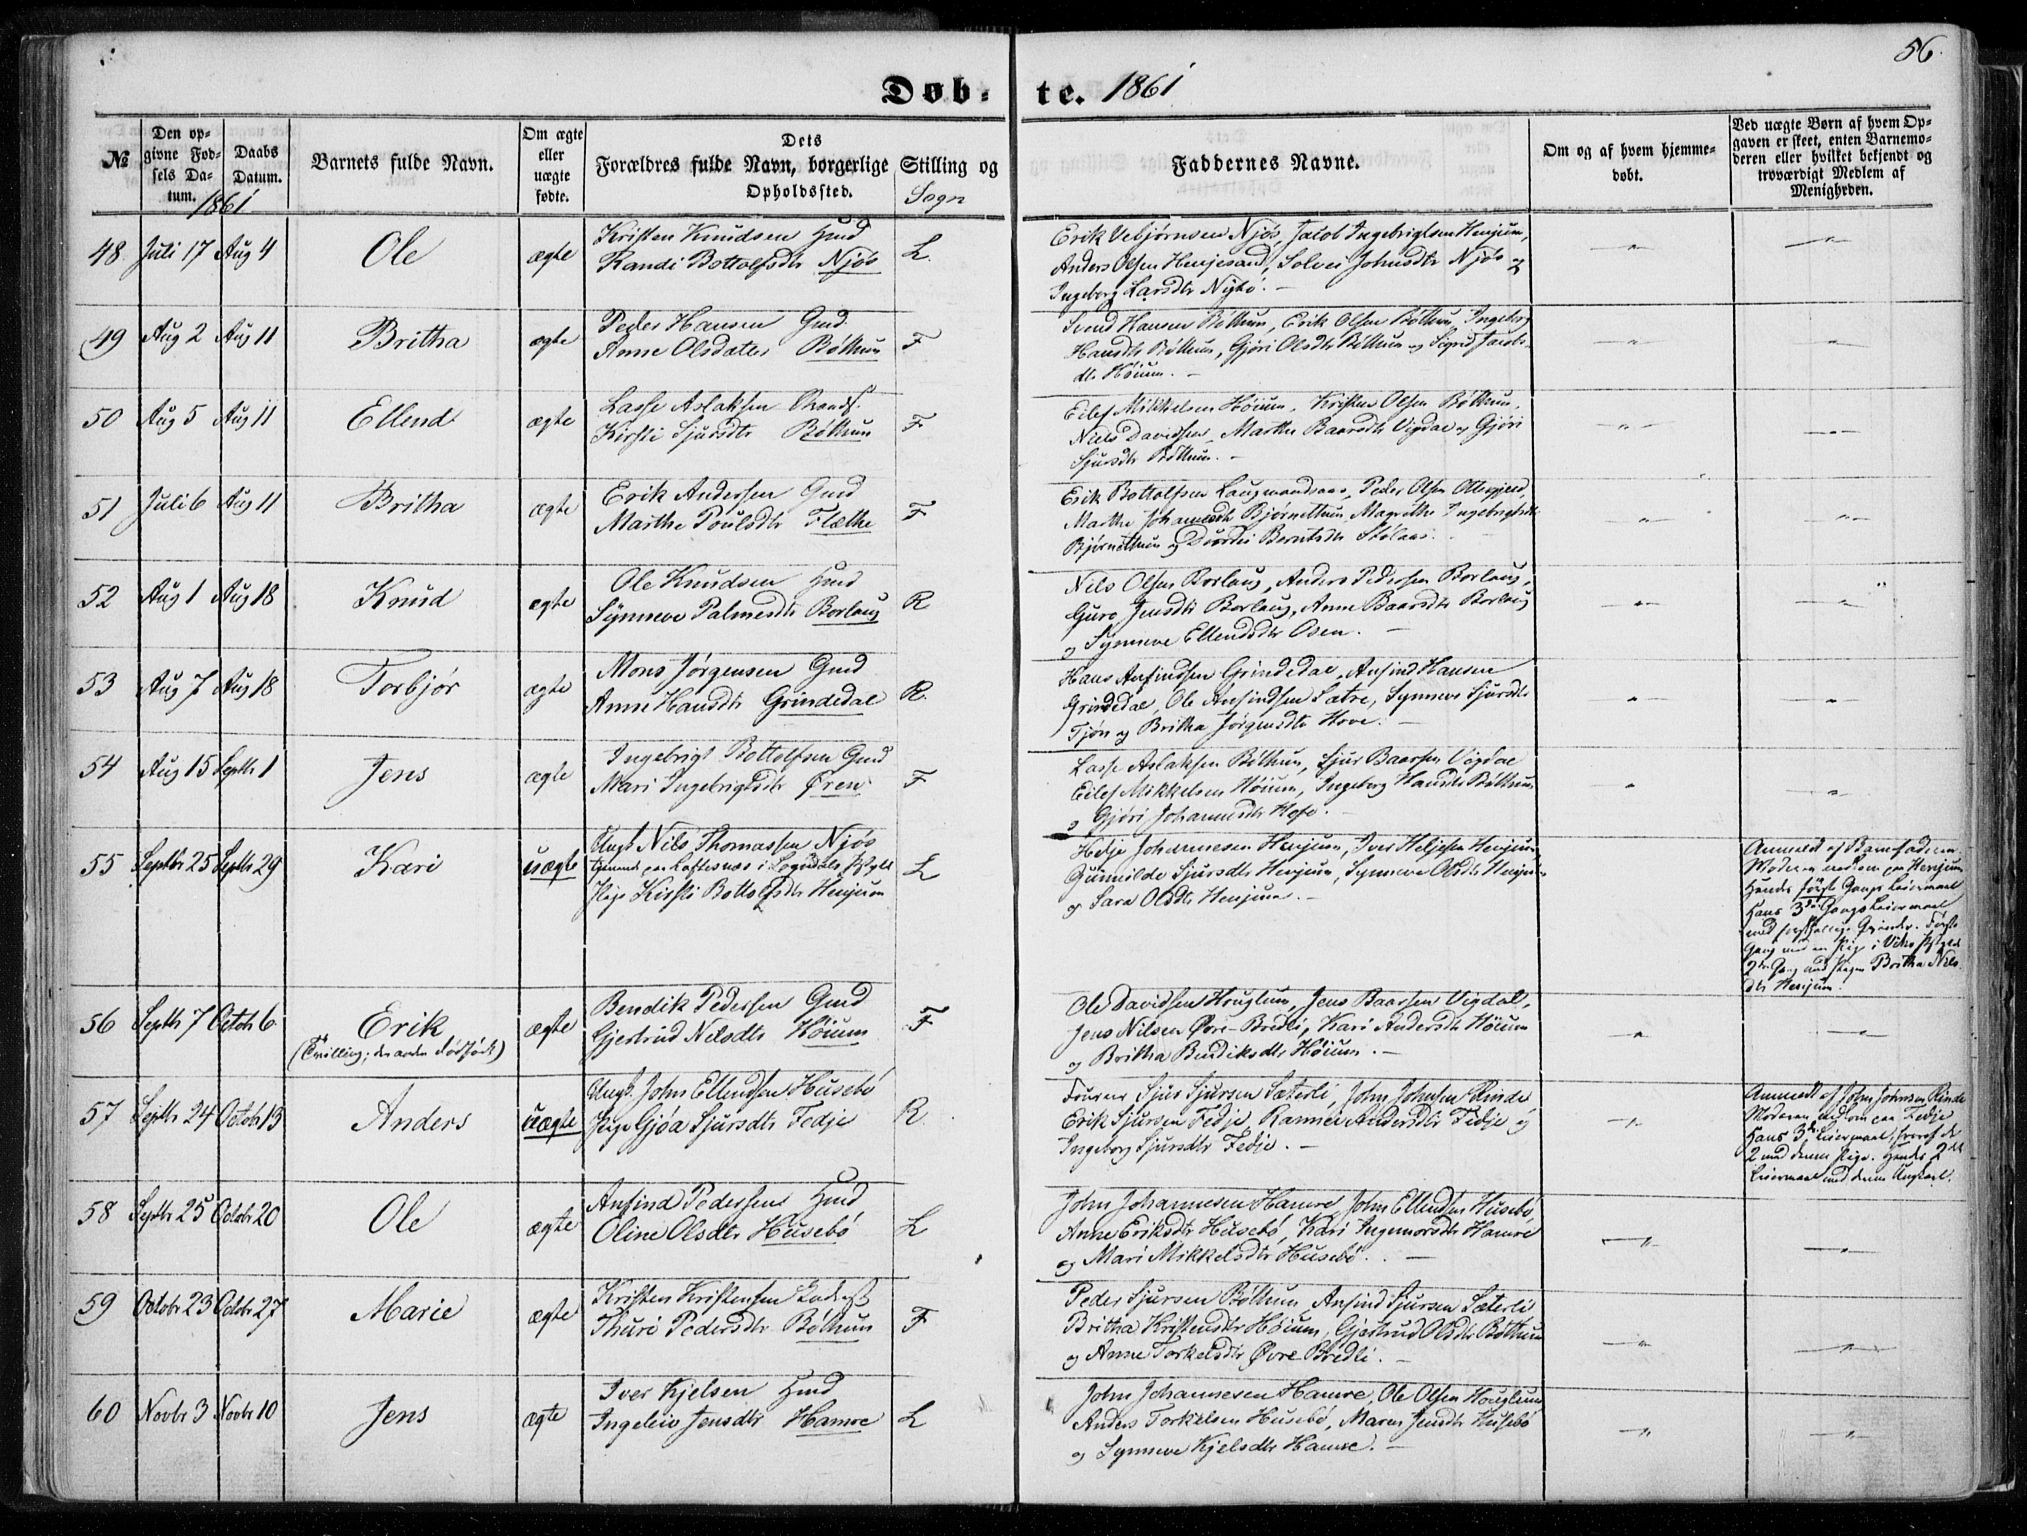 56.
Døb-te. 1861
№
Den op-
givne Fød-
sels Da-
tum.
1861
Daabs
Datum.
Barnets fulde Navn.
Om ægte
eller
uægte
fødte.
Dets
Forældres fulde Navn, borgerlige Stilling og
Opholdssted.
Sogn
Faddernes Navne.
Om og af hvem hjemme-
døbt.
Ved uægte Børn af hvem Op-
gaven er skeet, enten Barnemo-
deren eller hvilket bekjendt og
troværdigt Medlem af
Menigheden.
48. Juli 17 Aug 4 Ole ægte
Kristen Knudsen Hmd
Randi Bottolfsdtr Njøs L.
Erik Vebjørnsen Njøs, Jacob Ingebrigtsen Henjum,
Anders Olsen Henjesand, Solvei Johnsdtr Njøs og
Ingeborg Larsdtr Nybø. —
49 Aug 2 Aug 11 Britha ægte
Peder Hansen Gmd.
Anne Olsdater Bøthun F
Svend Hansen Bøthun, Erik Olsen Bøthun, Ingeborg
Hansdtr Bøthun, Gjøri Olsdtr Bøthun og Sigrid Jacobs-
dtr Høium. —
50 Aug 5 Aug 11 Ellend ægte
Lasse Aslaksen
Kirsti Sjursdtr Bøthun F
Eilef Mikkelsen Høium, Kristen Olsen Bøthun,
Niels Davidsen, Marthe Baarsdtr Vigdal og Gjøri
Sjursdtr Bøthun. —
51 Juli 6 Aug 11 Britha ægte
Erik Andersen Gmd
Marthe Poulsdtr Flæthe F
Erik Bottolfsen Laugmandsaas, Peder Olsen
Marthe Johannesdtr Bjørnethun, Magrethe Ingebrigtsdtr
Bjørnethun og Dorthi Berntsdtr Stølaas.
52 Aug 1 Aug 18 Knud ægte
Ole Knudsen Hmd
Synneve Palmesdtr Borlaug R
Nils Olsen Borlaug, Anders Pedersen Borlaug,
Guro Jensdtr Borlaug, Anne Baarsdtr Borlaug
og Synneve Ellendsdtr Osen. —
53 Aug 7 Aug 18 Torbjør ægte
Mons Jørgensen Gmd
Anne Hansdtr Grindedal R.
Hans Anfindsen Grindedal, Anfind Hansen
Grindedal, Ole Anfindsen Sætre, Synneve Sjursdtr
Tjøn og Britha Jørgensdtr Hove. —
54 Aug 15 Septbr 1 Jens ægte
Ingebrigt Bottolfsen Gmd
Mari Ingebrigtsdtr Øren F
Lasse Aslaksen Bøthun, Sjur Baarsen Vigdal
Eilef Mikkelsen Høium, Ingeborg Hansdtr Bøthun
og Gjøri Johannesdtr Hofe. —
55 Septbr 25 Septbr 29 Kari uægte
Ungk Nils Thomassen Njøs
tjenende paa Loftesnæs i Sogndals Pgjld
Pige Kirsti Bottolfsdtr Henjum L
Helje Johannesen Henjum, Iver Heljesen Henjum,
Gunnilde Sjursdtr Henjum, Synneve Olsdtr Henjum
og Sara Olsdtr Henjum. —
Anmeldt af Barnefaderen.
Moderen paa Henjum
Hendes første Gangs Leiermaal
Hans 3die Gangs Leiermaal
med forskjellige Qvinder. Første
Gang med en Pige i Viks Pgjld
2den Gang med Pigen Britha Nils-
dtr Henjum.
56 Septbr 7 Octob 6 Erik ægte
(Tvilling; den anden dødfødt)
Bendik Pedersen Gmd
Gjertrud Nilsdtr Høium F
Ole Davidsen Houglum, Jens Baarsen Vigdal,
Jens Nilsen Øvre-Bredli, Kari Andersdtr Høium
og Britha Bendiksdtr Høium. —
57 Septbr 24 Octob 13 Anders uægte
Ungk. John Ellendsen Husebø
Pige Gjøa Sjursdtr Fedje R.
Fourer Sjur Sjursen Sæterli, John Johnsen Rinde
Erik Sjursen Fedje, Rannei Andersdtr Fedje og
Ingeborg Sjursdtr Fedje. —
Anmeldt af John Johnsen Rinde
Moderen paa Fedje
Hans 3die Leiermaal, hvoraf de
2 med denne Pige. Hendes 2det
Leiermaal med denne Ungkarl.
58 Septbr 25 Octobr 20 Ole ægte
Anfind Pedersen Hmd
Oline Olsdtr Husebø L
John Johannesen Hamre, John Ellendsen Husebø
Anne Eriksdtr Husebø, Kari Ingemorsdtr Hamre
og Mari Mikkelsdtr Husebø. —
59 Octobr 23 Octobr 27 Marie ægte
Kristen Kristensen
Thuri Pedersdtr Bøthun F
Peder Sjursen Bøthun, Anfind Sjursen Sæterli
Britha Kristensdtr Høium, Gjertrud Olsdtr Bøthun
og Anne Torkelsdtr Øvre Bredli. —
60 Novbr 3 Novbr 10 Jens ægte
Iver Kjelsen Hmd
Ingeleiv Jensdtr Hamre L
John Johannesen Hamre, Ole Olsen Houglum
Anders Torkelsen Husebø, Maren Jensdtr Husebø
og Synneve Kjelsdtr Hamre. —